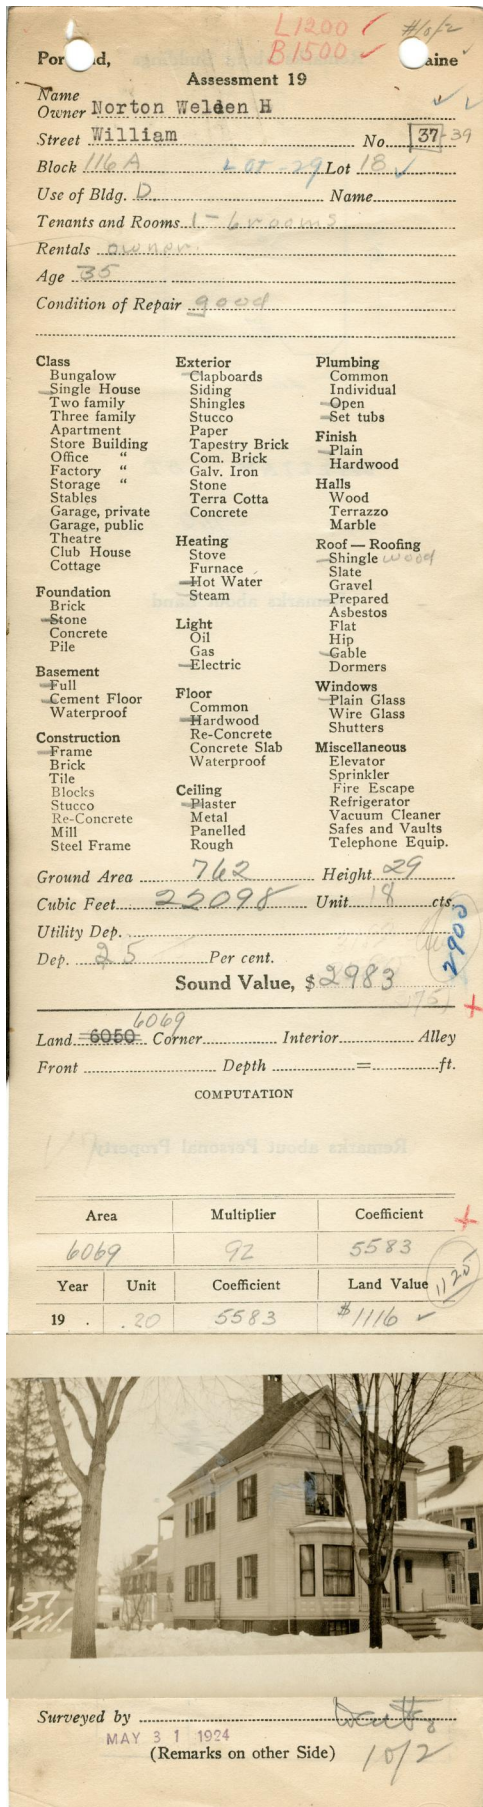 L1200 ✓ #10/2
B1500 ✓
Por nd, aine
Assessment 19
Name
Owner Norton Welden H ✓ ✓
Street William No 37-39
Block 116A LOT-29 Lot 18 ✓
Use of Bldg. D. Name
Tenants and Rooms 1-6 rooms
Rentals owner
Age 35
Condition of Repair good
Class
Bungalow
Single House
Two family
Three family
Apartment
Store Building
Office "
Factory "
Storage "
Stables
Garage, private
Garage, public
Theatre
Club House
Cottage
Foundation
Brick
Stone
Concrete
Pile
Basement
Full
Cement Floor
Waterproof
Construction
Frame
Brick
Tile
Blocks
Stucco
Re-Concrete
Mill
Steel Frame
Exterior
Clapboards
Siding
Shingles
Stucco
Paper
Tapestry Brick
Com. Brick
Galv. Iron
Stone
Terra Cotta
Concrete
Heating
Stove
Furnace
Hot Water
Steam
Light
Oil
Gas
Electric
Floor
Common
Hardwood
Re-Concrete
Concrete Slab
Waterproof
Ceiling
Plaster
Metal
Panelled
Rough
Plumbing
Common
Individual
Open
Set tubs
Finish
Plain
Hardwood
Halls
Wood
Terrazzo
Marble
Roof — Roofing
Shingle wood
Slate
Gravel
Prepared
Asbestos
Flat
Hip
Gable
Dormers
Windows
Plain Glass
Wire Glass
Shutters
Miscellaneous
Elevator
Sprinkler
Fire Escape
Refrigerator
Vacuum Cleaner
Safes and Vaults
Telephone Equip.
Ground Area 762 Height 29
Cubic Feet 22098 Unit 18 cts.
Utility Dep.
2900
Dep. 25 Per cent.
Sound Value, $2983
6069
Land 6050 Corner Interior Alley
Front Depth = ft.
COMPUTATION
Remarks about Personal Property
Area Multiplier Coefficient
6069 92 5583
Year Unit Coefficient Land Value 1125
19 . .20 5583 $1116 ✓
37
Wil.
Surveyed by
MAY 31 1924
(Remarks on other Side) 10/2